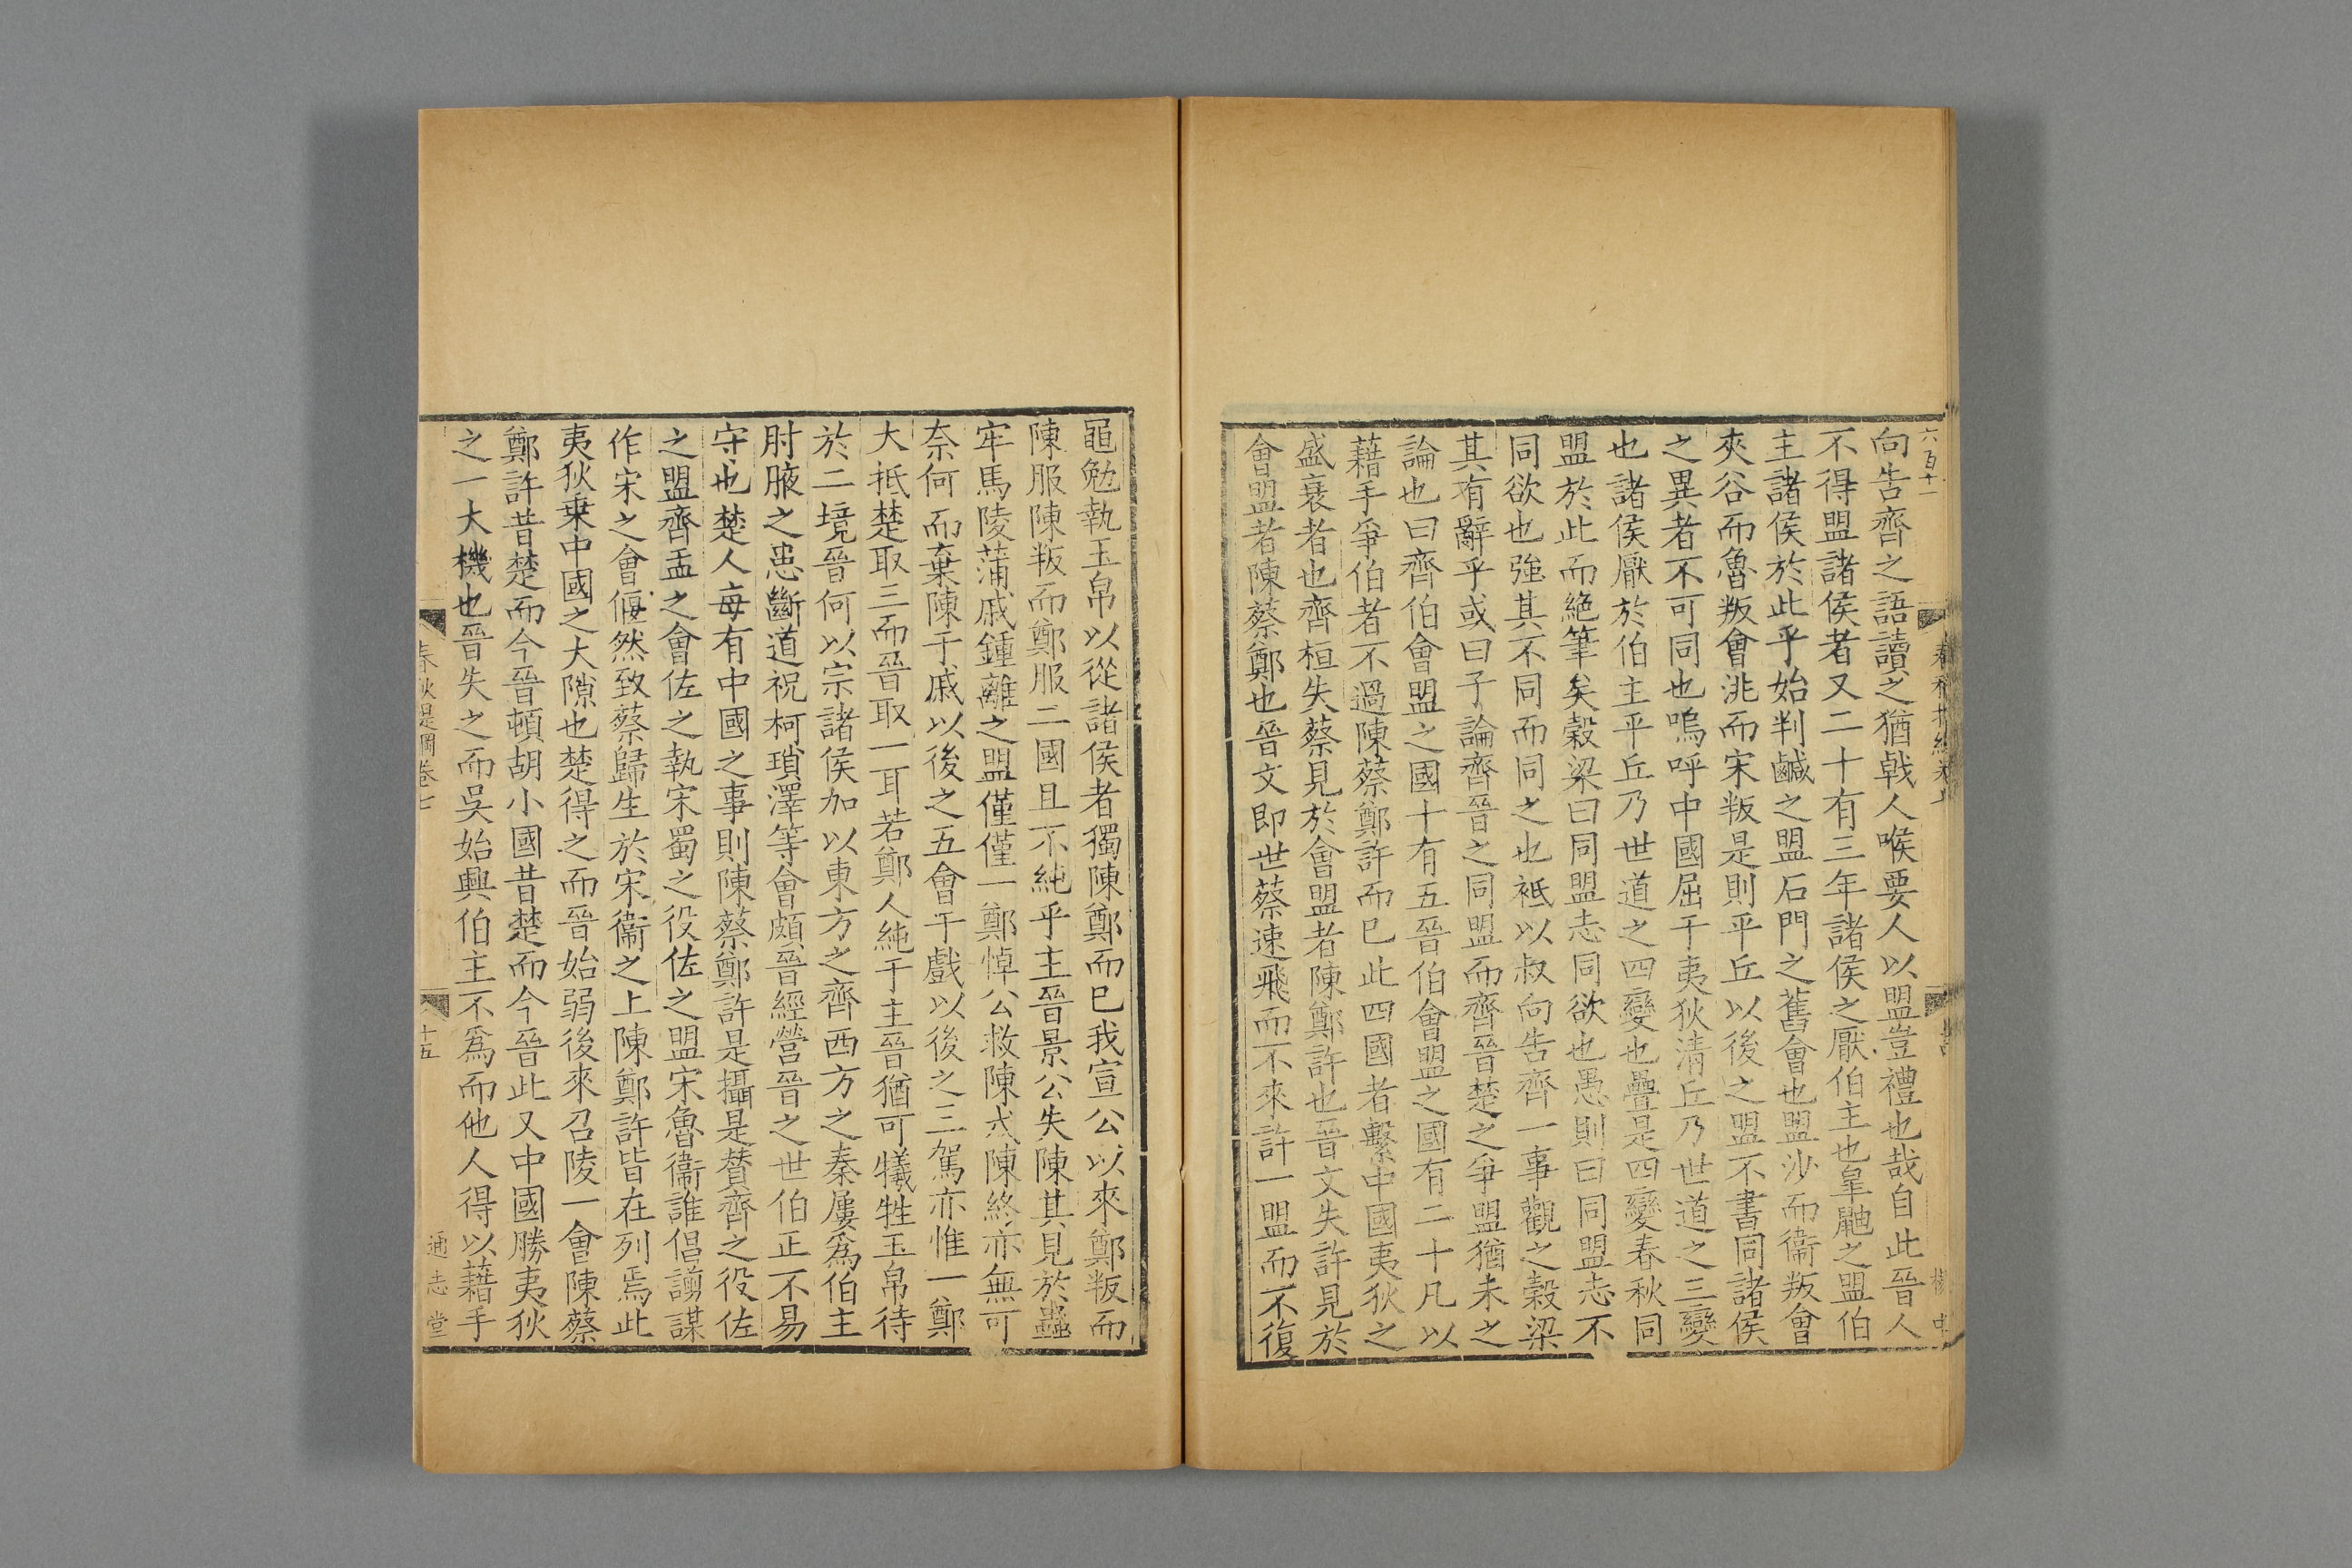 六百十一
向告齊之語讀之猶戟人喉要人以盟豈禮也哉自此晉人
不得盟諸侯者又二十有三年諸侯之厭伯主也臯鼬之盟伯
主諸侯於此乎始判鹹之盟石門之舊會也盟沙而衞叛會
夾谷而魯叛會洮而宋叛是則平丘以後之盟不書同諸侯
之異者不可同也嗚呼中國屈于夷狄清丘乃世道之三變
也諸侯厭於伯主平丘乃世道之四變也疊是四變春秋同
盟於此而絶筆矣穀梁曰同盟志同欲也愚則曰同盟志不
同欲也強其不同而同之也袛以叔向告齊一事觀之穀梁
其有辭乎或曰子論齊晉之同盟而齊晉楚之爭盟猶未之
論也曰齊伯會盟之國十有五晉伯會盟之國有二十凡以
藉手爭伯者不過陳蔡鄭許而已此四國者繫中國夷狄之
盛衰者也齊桓失蔡見於會盟者陳鄭許也晉文失許見於
會盟者陳蔡鄭也晉文即世蔡速飛而不來許一盟而不復
黽勉執玉帛以從諸侯者獨陳鄭而已我宣公以來鄭叛而
陳服陳叛而鄭服二國且不純乎主晉景公失陳其見於蟲
牢馬陵蒲戚鍾離之盟僅僅一鄭悼公救陳戍陳終亦無可
奈何而棄陳于戚以後之五會于戲以後之三駕亦惟一鄭
大抵楚取三而晉取一耳若鄭人純于主晉猶可犧牲玉帛待
於二境晉何以宗諸侯加以東方之齊西方之秦屢爲伯主
肘腋之患斷道祝柯瑣澤等會頗晉經營晉之世伯正不易
守也楚人每有中國之事則陳蔡鄭許是攝是賛齊之役佐
之盟齊盂之會佐之執宋蜀之役佐之盟宋魯衞誰倡謭謀
作宋之會偃然致蔡歸生於宋衞之上陳鄭許皆在列焉此
夷狄乗中國之大隙也楚得之而晉始弱後來召陵一會陳蔡
鄭許昔楚而今晉頓胡小國昔楚而今晉此又中國勝夷狄
之一大機也晉失之而吳始興伯主不爲而他人得以藉手
春秋提綱卷七
十五
通志堂